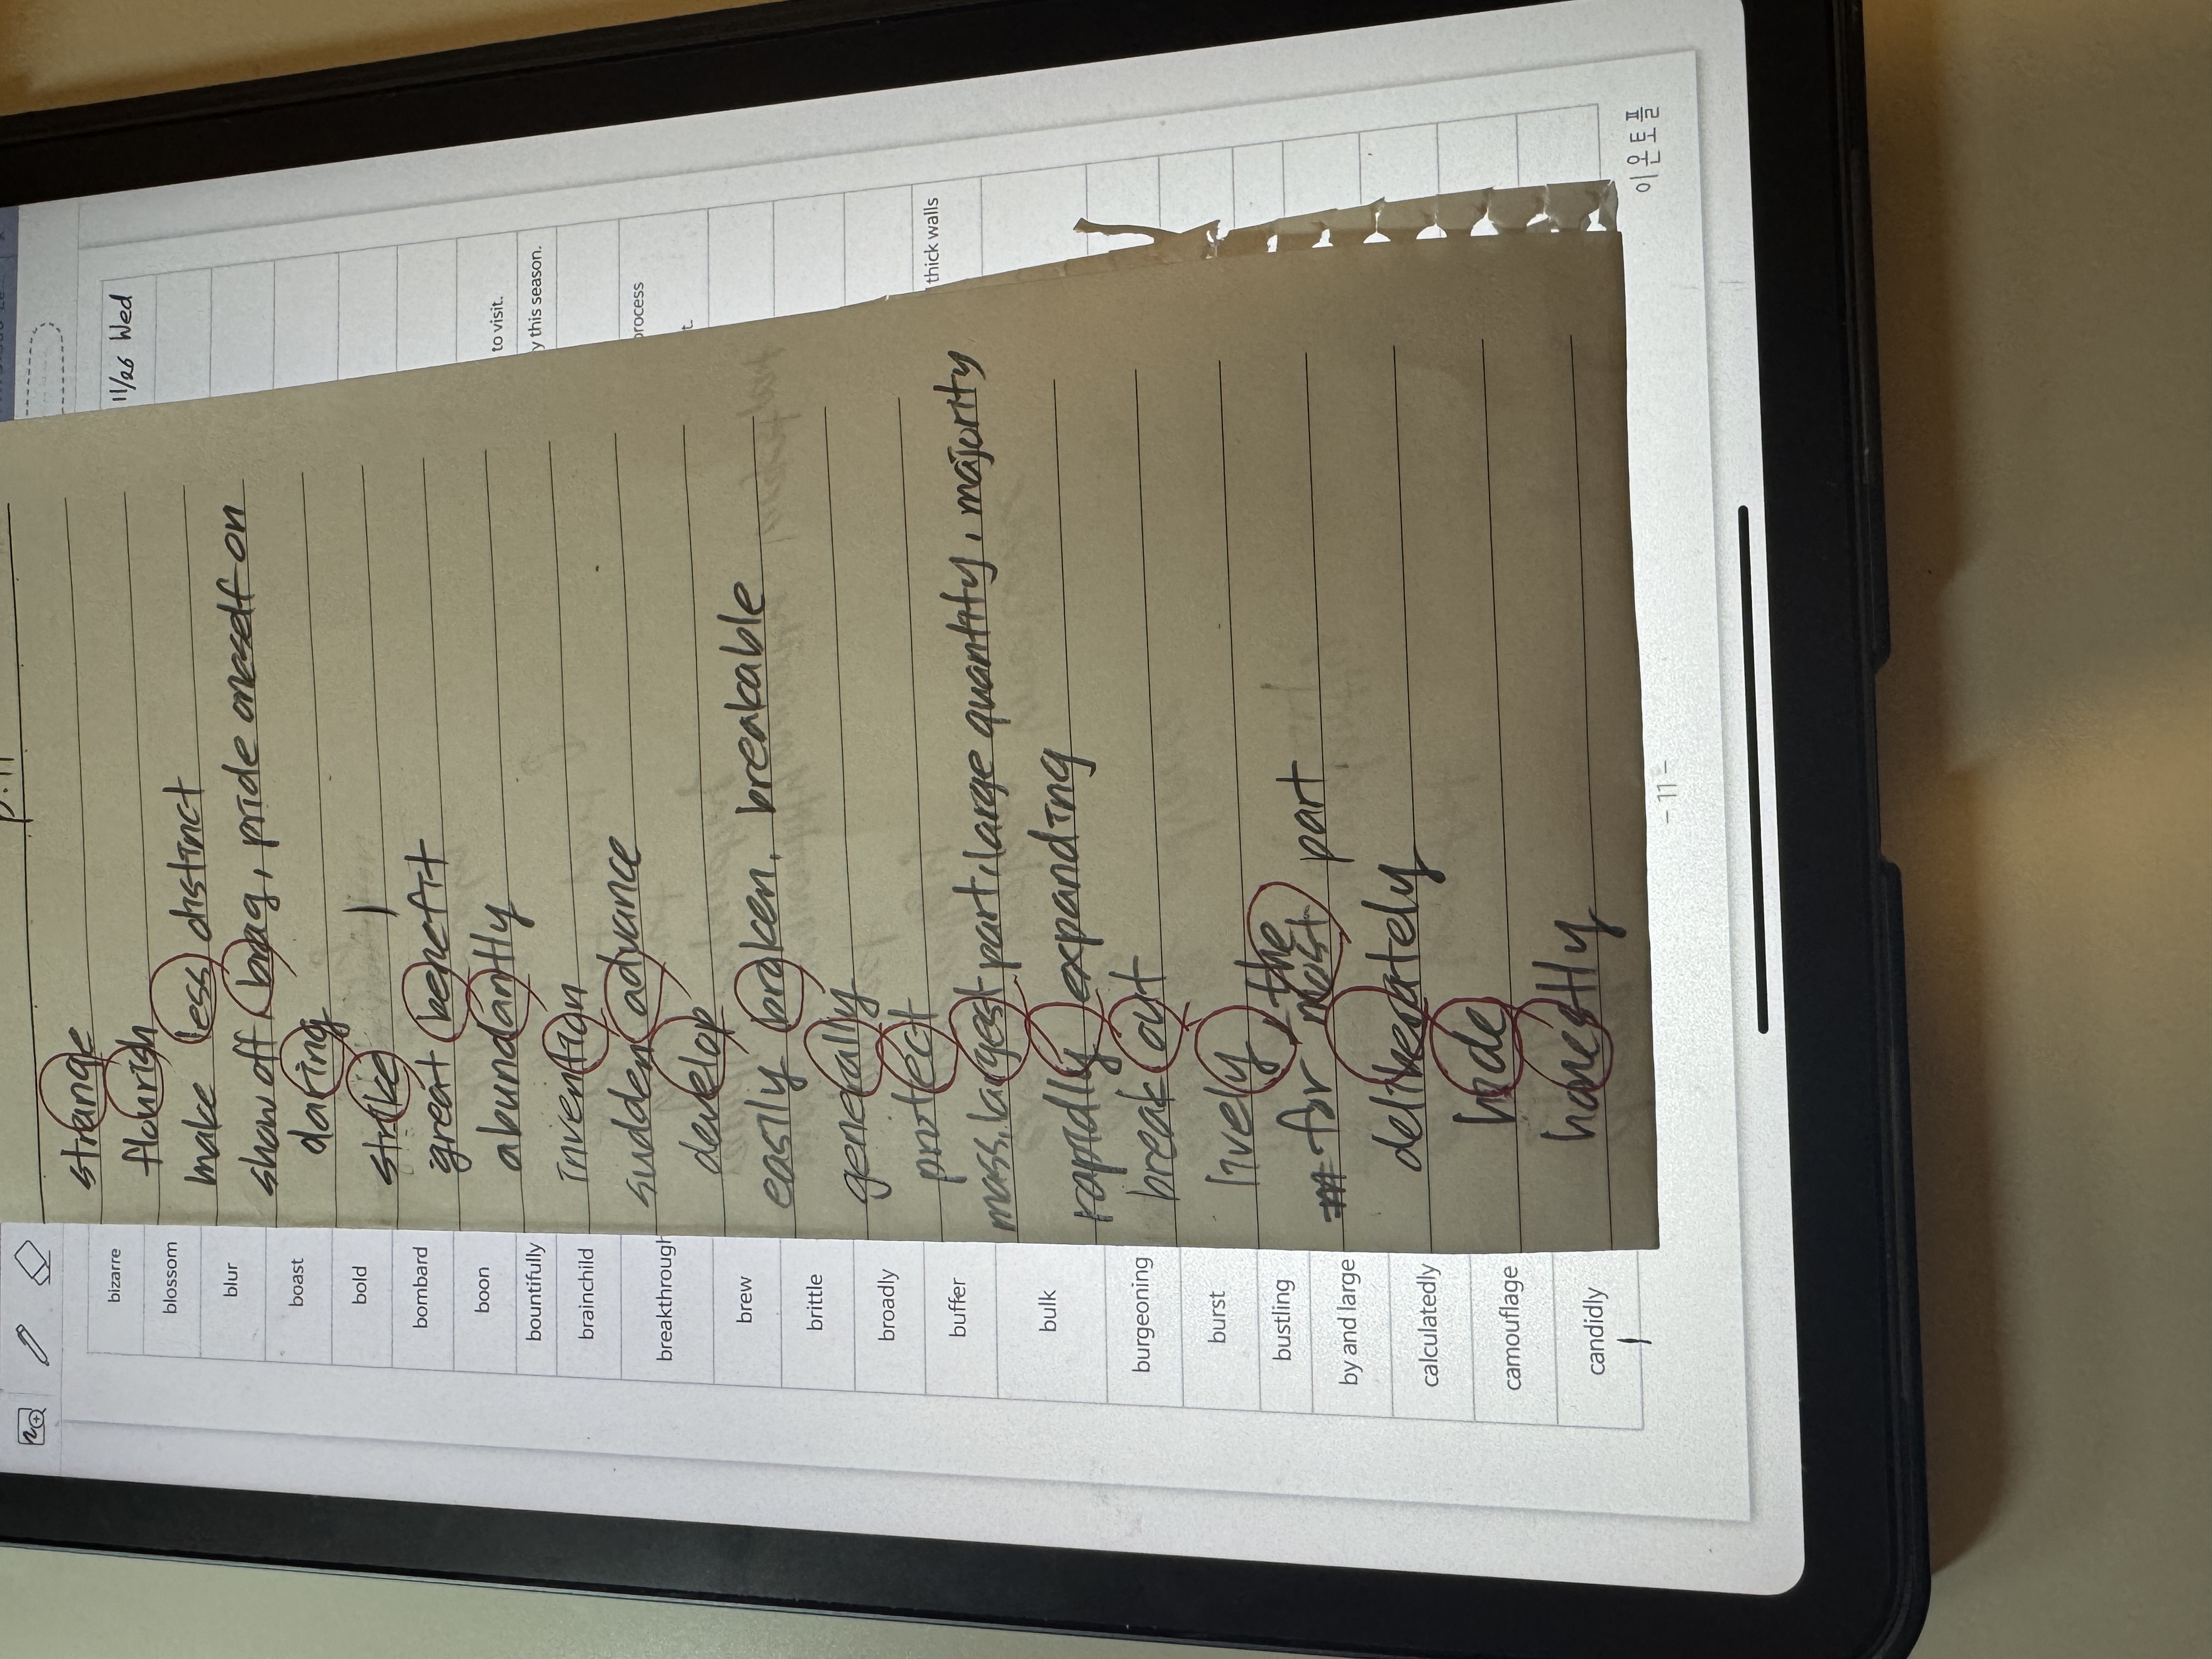 11/26 Wed
bizarre strange
blossom flourish
blur make less distinct
boast show off, brag, pride oneself on
bold daring
bombard strike
boon great benefit to visit.
bountifully abundantly y this season.
brainchild invention
breakthrough sudden advance process
brew develop t.
brittle easily broken, breakable
broadly generally
buffer protect thick walls
bulk mass, largest part, large quantity, majority
burgeoning rapidly expanding
burst break out
bustling lively
by and large for the most part
calculatedly deliberately
camouflage hide
candidly honestly
- 11 -
이윤토플